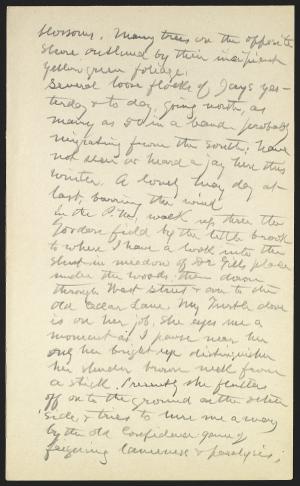 blossoms. Many trees on the opposite
shore outlined by their incipient
yellow green foliage.
Several loose flocks of Jays yes-
terday & to day, going north, as
many as 50 in a band. probably
migrating from the South; have
not seen or heard a jay here this
winter. A lovely May day at
last, barring the wind
In the P.M. walk up thro the
Gordon field by the little brook
to where I have a look into the
shut-in meadow of place
under the woods, then down
through West Street & over to the
old cedar lane. My Turtle dove
is on her job, she eyes me a
moment as I pause near her
only her bright eye distinguishes
her slender brown neck from
a stick. Presently she flutters
off on to the ground on the other
side & tries to lure me away
by the old confidence game of
feigning lameness & paralysis;